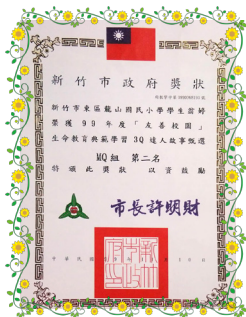 新竹市政府獎狀
新竹市東區龍山國民小學學生翁婷
榮獲99年度「友善校園」
生命教育典範學習3Q達人故事甄選
MQ組 第二名
特頒此獎狀 以資鼓勵
市長許明財
新竹市政府印
中華民國